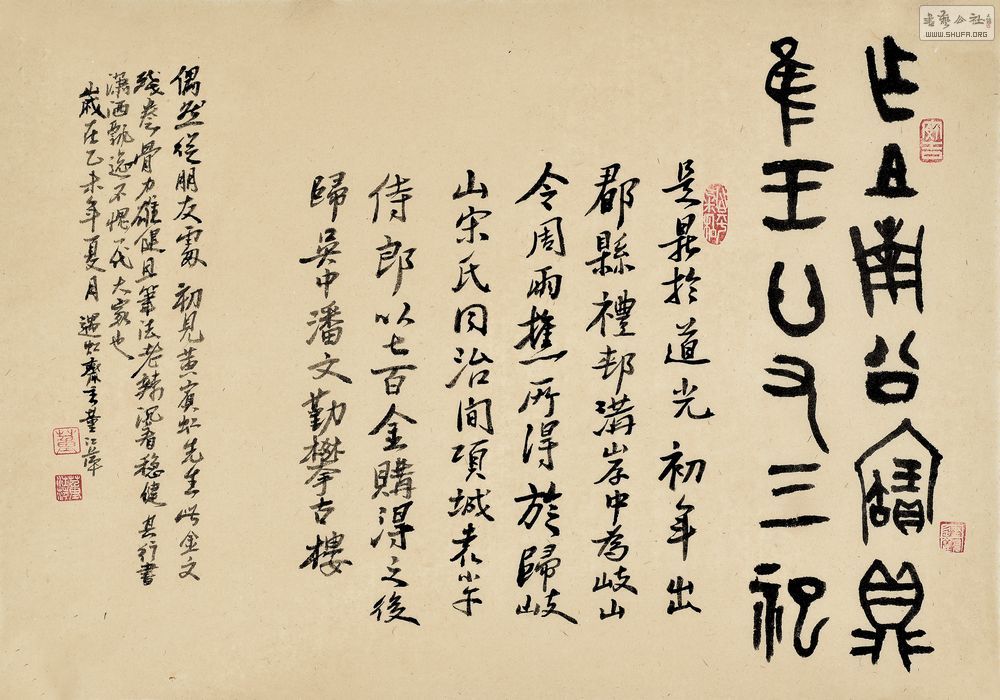 書藝公社
WWW.SHUFA.ORG
乍且南公寶鼎
隹王廿又三祀
是鼎於道光初年出
郿縣禮邨溝岸中為岐山
令周雨樵所得於歸岐
山宋氏同治間項城袁小午
侍郎以七百金購得之後
歸吳中潘文勤攀古樓
偶然從朋友處初見黃賓虹先生此金文
殘卷骨力雄健且筆法老辣沉著穩健其行書
瀟洒飄逸不愧一代大家也
歲在乙未年夏月遇虹齋主董江